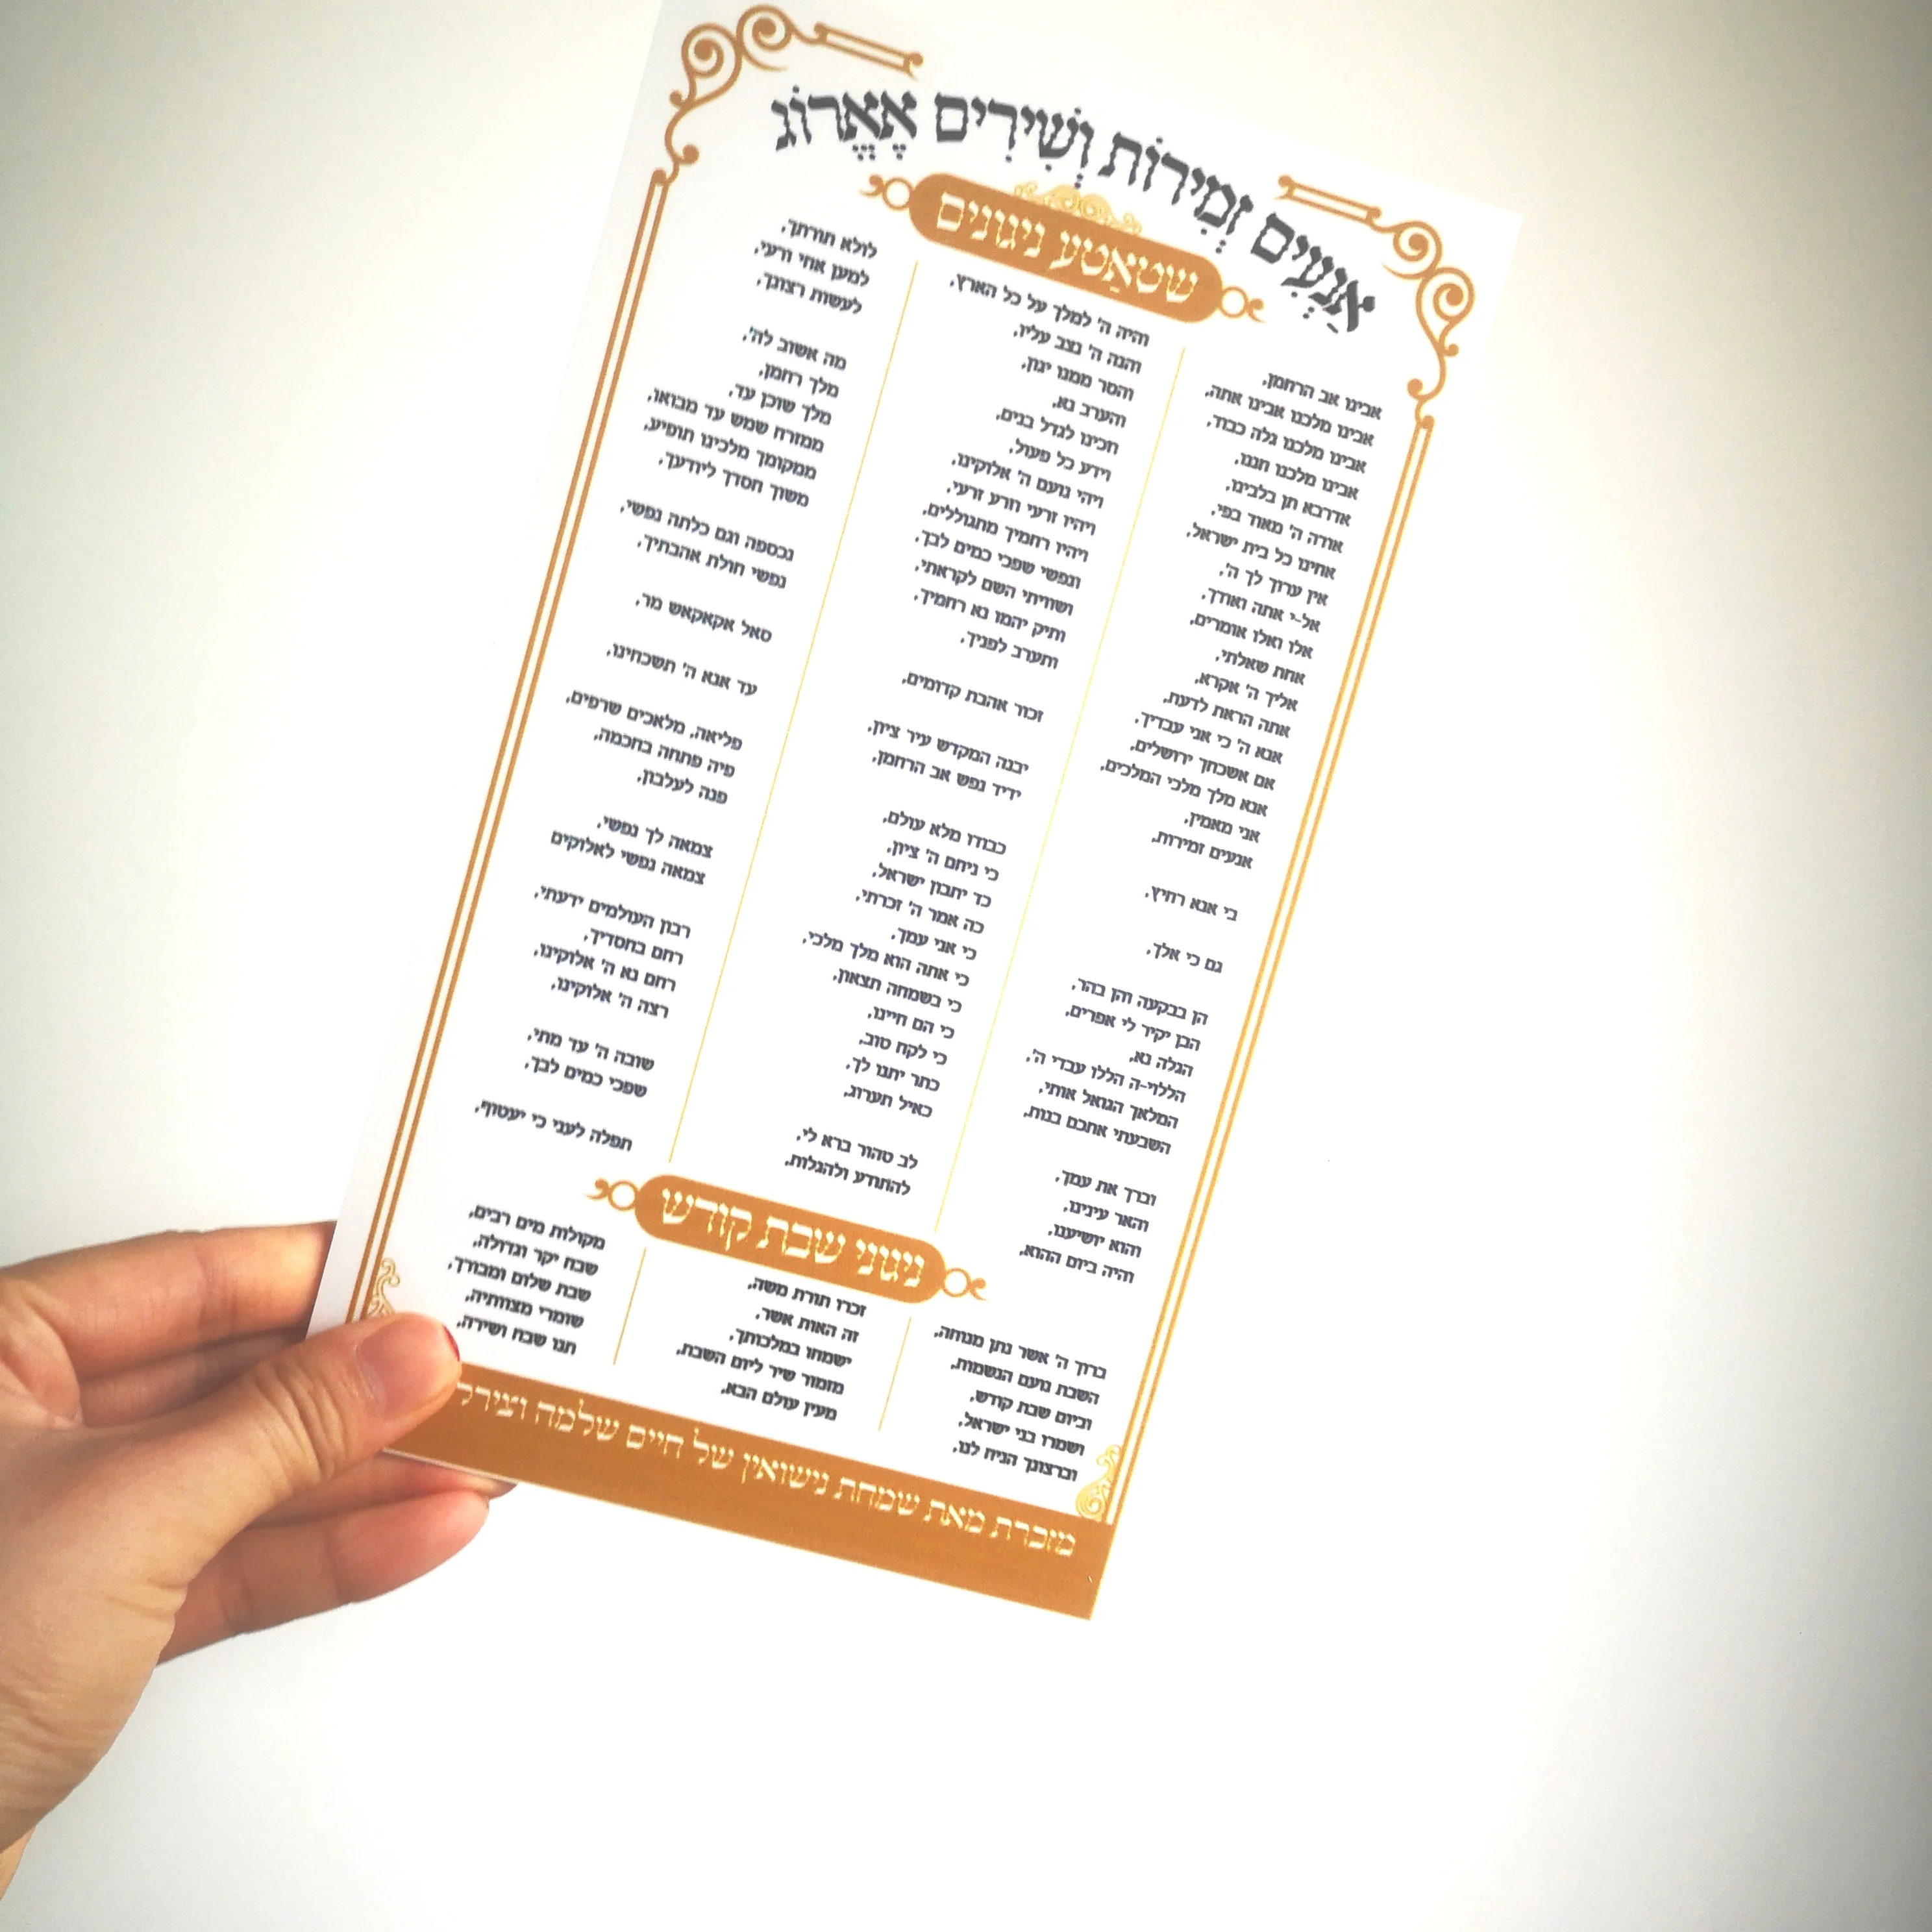 אַנְעִים זְמִירוֹת וְשִׁירִים אֶאֱרוֹג
שטאַטע ניגונים
אבינו אב הרחמן,
אבינו מלכנו אבינו אתה,
אבינו מלכנו גלה כבוד,
אבינו מלכנו חננו,
אדרבא תן בלבינו,
אודה ה' מאוד בפי,
אחינו כל בית ישראל,
אין ערוך לך ה',
אל-י אתה ואודך,
אלו ואלו אומרים,
אחת שאלתי,
אליך ה' אקרא,
אתה הראת לדעת,
אנא ה' כי אני עבדיך,
אם אשכחך ירושלים,
אנא מלך מלכי המלכים,
אני מאמין,
אנעים זמירות,
בי אנא רחיץ,
גם כי אלך,
הן בבקעה והן בהר,
הבן יקיר לי אפרים,
הגלה נא,
הללוי-ה הללו עבדי ה',
המלאך הגואל אותי,
השבעתי אתכם בנות,
וברך את עמך,
והאר עינינו,
והוא יושיענו,
והיה ביום ההוא,
והיה ה' למלך על כל הארץ,
והנה ה' נצב עליו,
והסר ממנו יגון,
והערב נא,
וזכינו לגדל בנים,
וידע כל פעול,
ויהי נועם ה' אלוקינו,
ויהיו זרעי וזרע זרעי,
ויהיו רחמיך מתגוללים,
ונפשי שפכי כמים לבך,
ושוויתי השם לקראתי,
ותיק יהמו נא רחמיך,
ותערב לפניך,
זכור אהבת קדומים,
יבנה המקדש עיר ציון,
ידיד נפש אב הרחמן,
כבודו מלא עולם,
כי ניחם ה' ציון,
כד יתבון ישראל,
כה אמר ה' זכרתי,
כי אני עמך,
כי אתה הוא מלך מלכי,
כי בשמחה תצאון,
כי הם חיינו,
כי לקח טוב,
כתר יתנו לך,
כאיל תערוג,
לב טהור ברא לי,
להתודע ולהגלות,
לולא תורתך,
למען אחי ורעי,
לעשות רצונך,
מה אשוב לה',
מלך רחמן,
מלך שוכן עד,
ממזרח שמש עד מבואו,
ממקומך מלכינו תופיע,
משוך חסדך ליודעך,
נכספה וגם כלתה נפשי,
נפשי חולת אהבתיך,
סאל אקאקאש מר,
עד אנא ה' תשכחינו,
פליאה, מלאכים שרפים,
פיה פתחה בחכמה,
פנה לעלבון,
צמאה לך נפשי,
צמאה נפשי לאלוקים
רבון העולמים ידעתי,
רחם בחסדיך,
רחם נא ה' אלוקינו,
רצה ה' אלוקינו,
שובה ה' עד מתי,
שפכי כמים לבך,
תפלה לעני כי יעטוף,
ניגוני שבת קודש
ברוך ה' אשר נתן מנוחה,
השבת נועם הנשמות,
וביום שבת קודש,
ושמרו בני ישראל,
וברצונך הניח לנו,
זכרו תורת משה,
זה האות אשר,
ישמחו במלכותך,
מזמור שיר ליום השבת,
מעין עולם הבא,
מקולות מים רבים,
שבח יקר וגדולה,
שבת שלום ומבורך,
שומרי מצוותיה,
תנו שבח ושירה,
מזכרת מאת שמחת נישואין של חיים שלמה וצירל